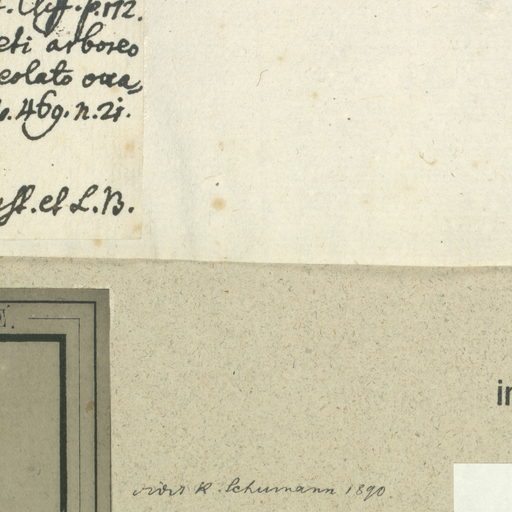 Cliff. p. 172.
eti arboreo
eolato ova,
469. n. 21.
et L. B.
vidit K. Schumann 1890.
in